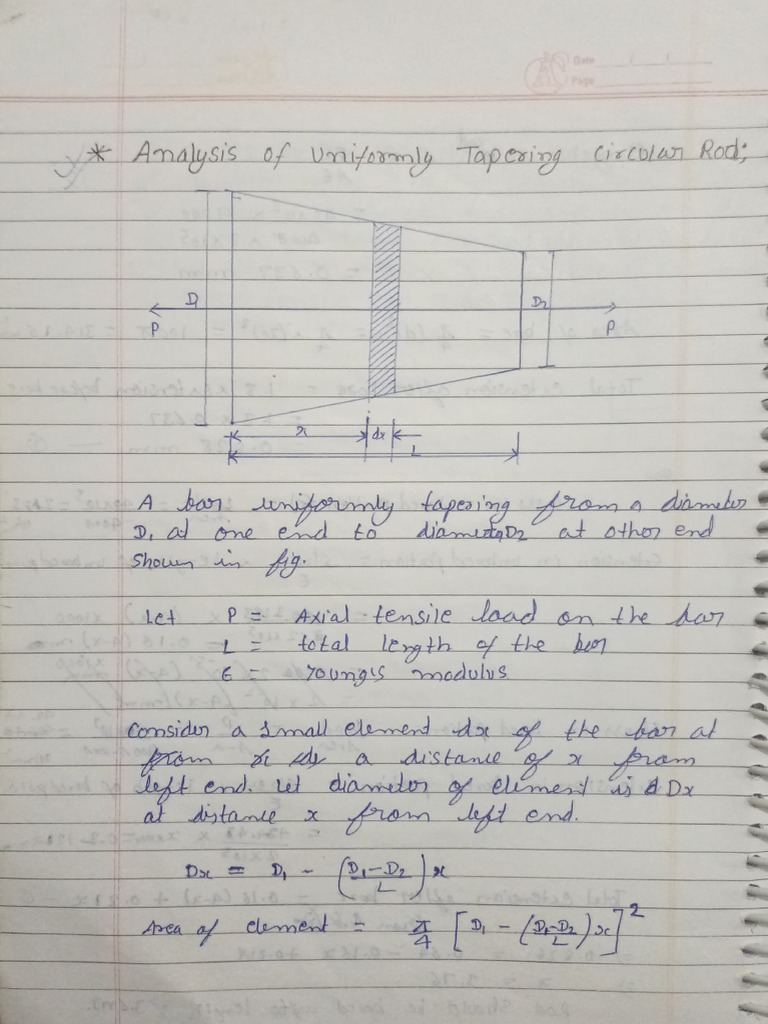 Date
Page
* Analysis of Uniformly Tapering Circular Rod;
D1 D2
P P
x dx
L
A bar uniformly tapering from a diameter
D1 at one end to diameter D2 at other end
shown in fig.
Let P = Axial tensile load on the bar
L = total length of the bar
E = Young's modulus
Consider a small element dx of the bar at
from a distance of x from
left end. Let diameter of element is Dx
at distance x from left end.
Dx = D1 - (D1-D2/L) x
Area of element = π/4 [D1 - (D1-D2/L) x]²